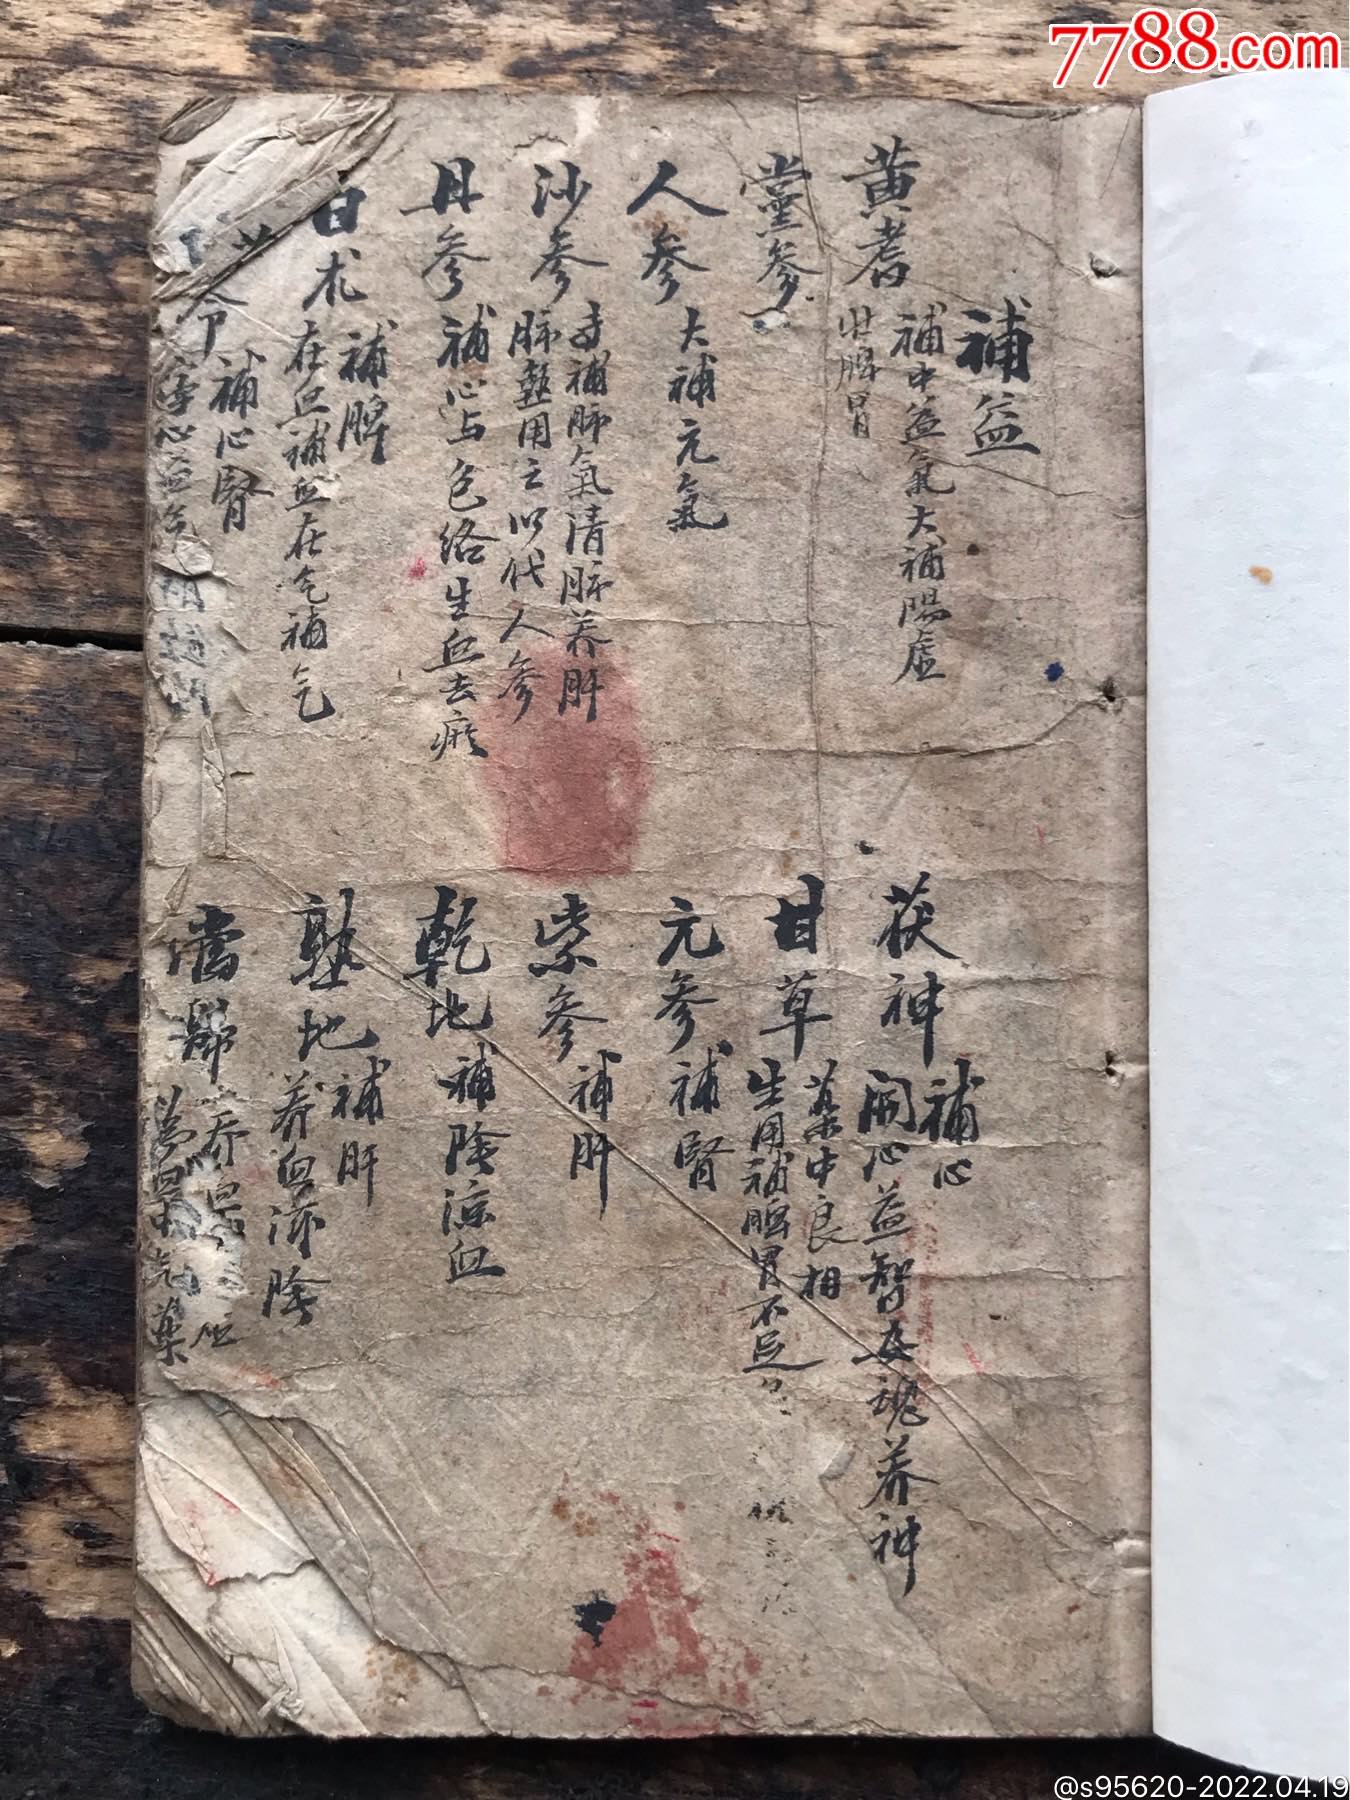 7788.com
補益
黄耆
補中益氣大補陽虛
壮脾胃
黨參
人參大補元氣
沙參
補肺氣清肺养肝
肺熱用之以代人參
丹參補心与包络生血去瘀
白朮
補脾
在血補血在气補气
苓
補心腎
寧心益气
茯神
補心
開心益智安魂养神
甘草
藥中良相
生用補脾胃不足
元參補腎
紫參補肝
乾地補陰涼血
熟地
補肝
养血滋陰
當歸
养血
藥
@s95620-2022.04.19